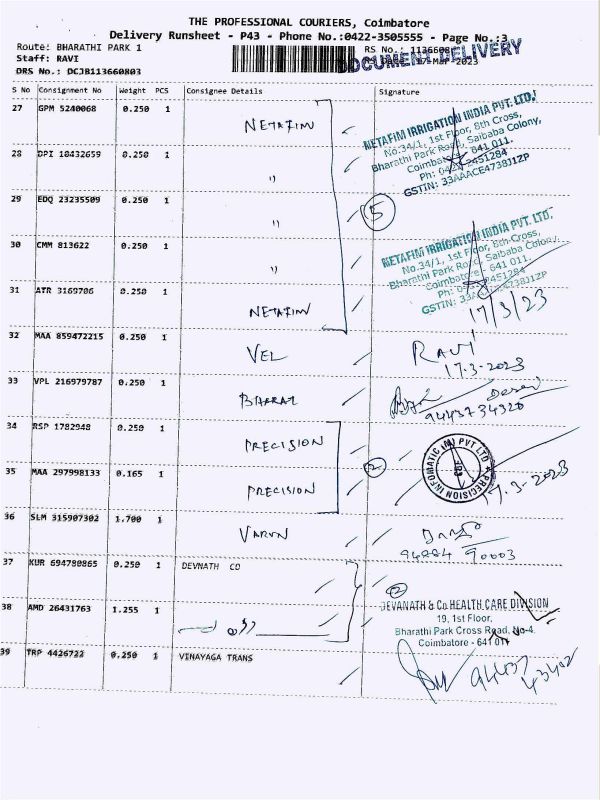 THE PROFESSIONAL COURIERS, Coimbatore
Delivery Runsheet - P43 - Phone No.:0422-3505555 - Page No.:3
Route: BHARATHI PARK 1
RS No.: 1136608
Staff: RAVI
DOCUMENT DELIVERY
17-Mar 2023
DRS No.: DCJB113660803
S No Consignment No Weight PCS Consignee Details Signature
27 GPM 5240068 0.250 1 NETAFIM
NETAFIM IRRIGATION INDIA PVT. LTD.
No.34/1, 1st Floor, 8th Cross,
Bharathi Park Road, Saibaba Colony,
Coimbatore - 641 011.
Ph: 0422-2451284
GSTIN: 33AAACE4738J1ZP
28 DPI 10432659 0.250 1 "
29 EDQ 23235509 0.250 1 "
5
30 CMM 813622 0.250 1 "
NETAFIM IRRIGATION INDIA PVT. LTD.
No.34/1, 1st Floor, 8th Cross,
Bharathi Park Road, Saibaba Colony,
Coimbatore - 641 011.
GSTIN:
31 ATR 3169706 0.250 1 NETAFIM
17/3/23
32 MAA 859472215 0.250 1 VEL
RAVI
17.3-2023
33 VPL 216979787 0.250 1 BHARAT
9443734320
34 RSP 1782948 0.250 1 PRECISION
2
PRECISION INFOMATIC (M) PVT LTD
17.3-2023
35 MAA 297998133 0.165 1 PRECISION
36 SLM 315907302 1.700 1 VARUN
94884 90003
37 KUR 694780865 0.250 1 DEVNATH CO
2
38 AMD 26431763 1.255 1
DEVANATH & Co HEALTH CARE DIVISION
19, 1st Floor,
Bharathi Park Cross Road, No-4
Coimbatore - 641 011
39 TRP 4426722 0.250 1 VINAYAGA TRANS
94437
43402